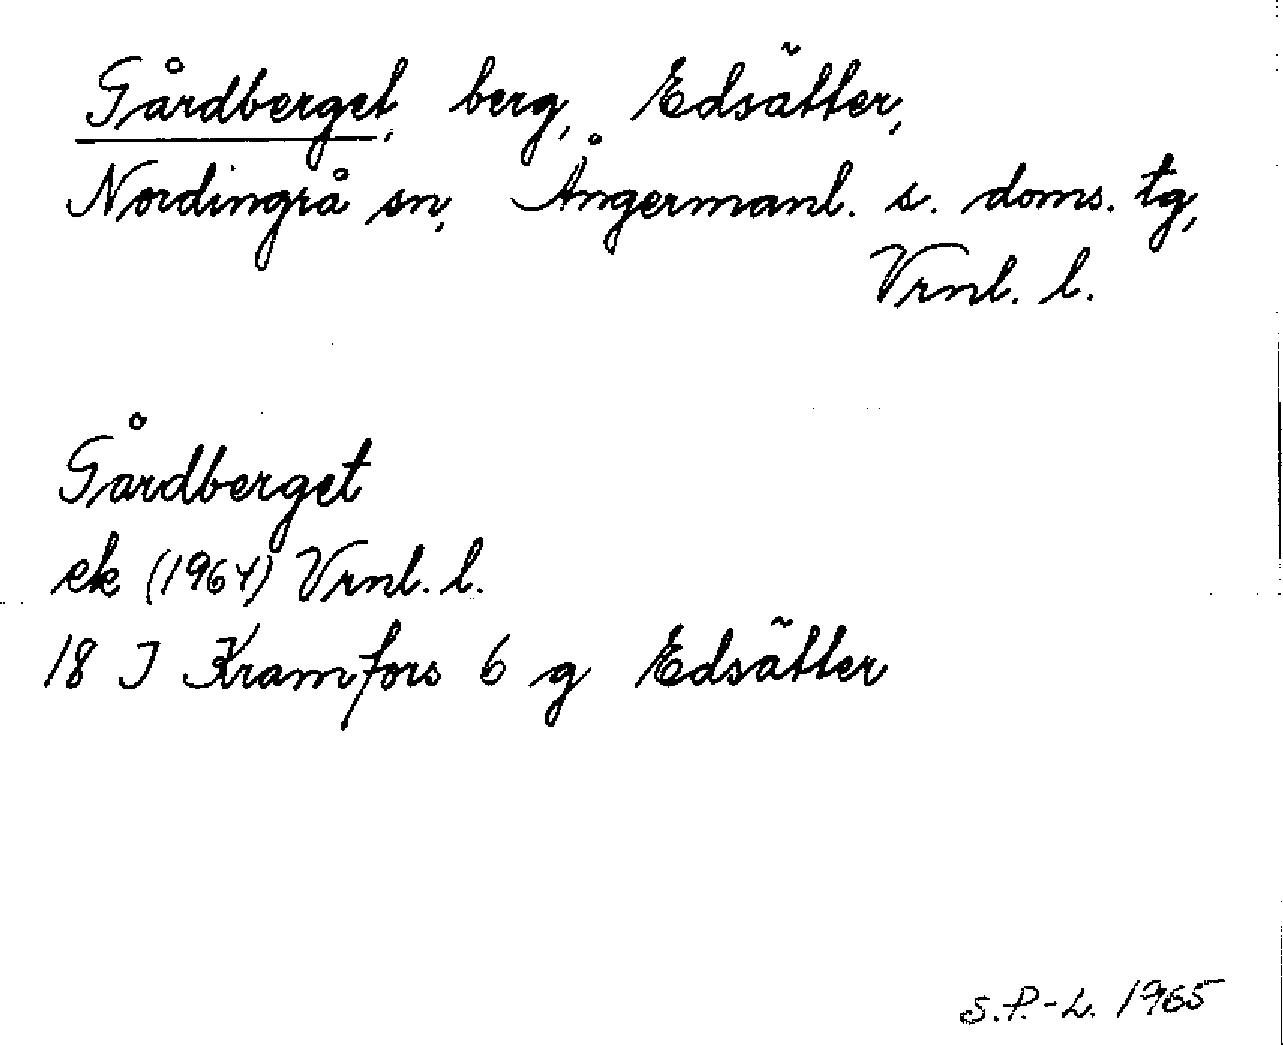 Gårdberget, berg, Edsätter,
Nordingrå sn, Ångermanl. s. doms. tg,
Vrnl. l.
Gårdberget
ek (1964) Vrnl. l.
18 J Kramfors 6 g Edsätter
S.P.-L. 1965